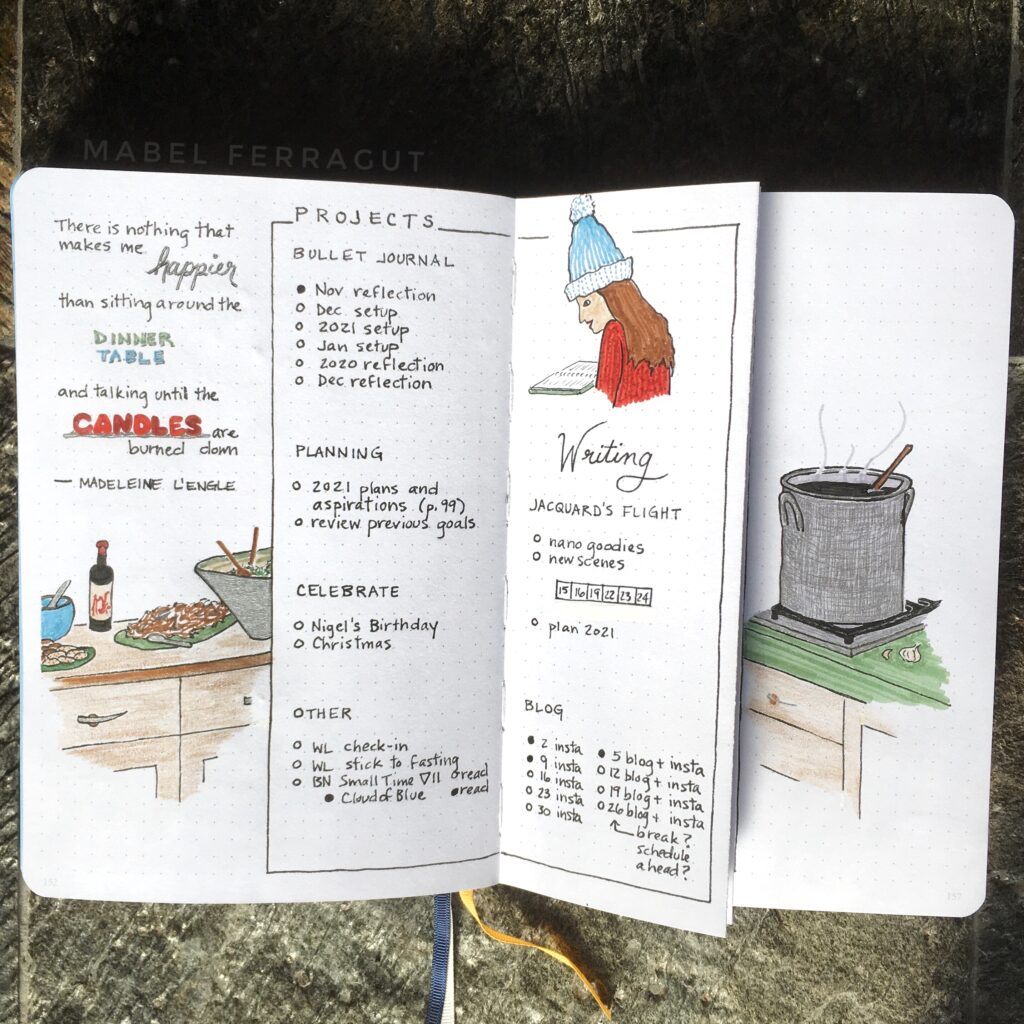 MABEL FERRAGUT
There is nothing that
makes me
happier
than sitting around the
DINNER
TABLE
and talking until the
CANDLES are
burned down
— MADELEINE L'ENGLE
152
PROJECTS
BULLET JOURNAL
Nov reflection
Dec setup
2021 setup
Jan setup
2020 reflection
Dec reflection
PLANNING
2021 plans and
aspirations (p.99)
review previous goals
CELEBRATE
Nigel's Birthday
Christmas
OTHER
WL check-in
WL stick to fasting
BN Small Time ∇11 read
Cloud of Blue read
Writing
JACQUARD'S FLIGHT
nano goodies
new scenes
15 16 19 22 23 24
plan 2021
BLOG
2 insta
9 insta
16 insta
23 insta
30 insta
5 blog + insta
12 blog + insta
19 blog + insta
26 blog + insta
break?
schedule
ahead?
157